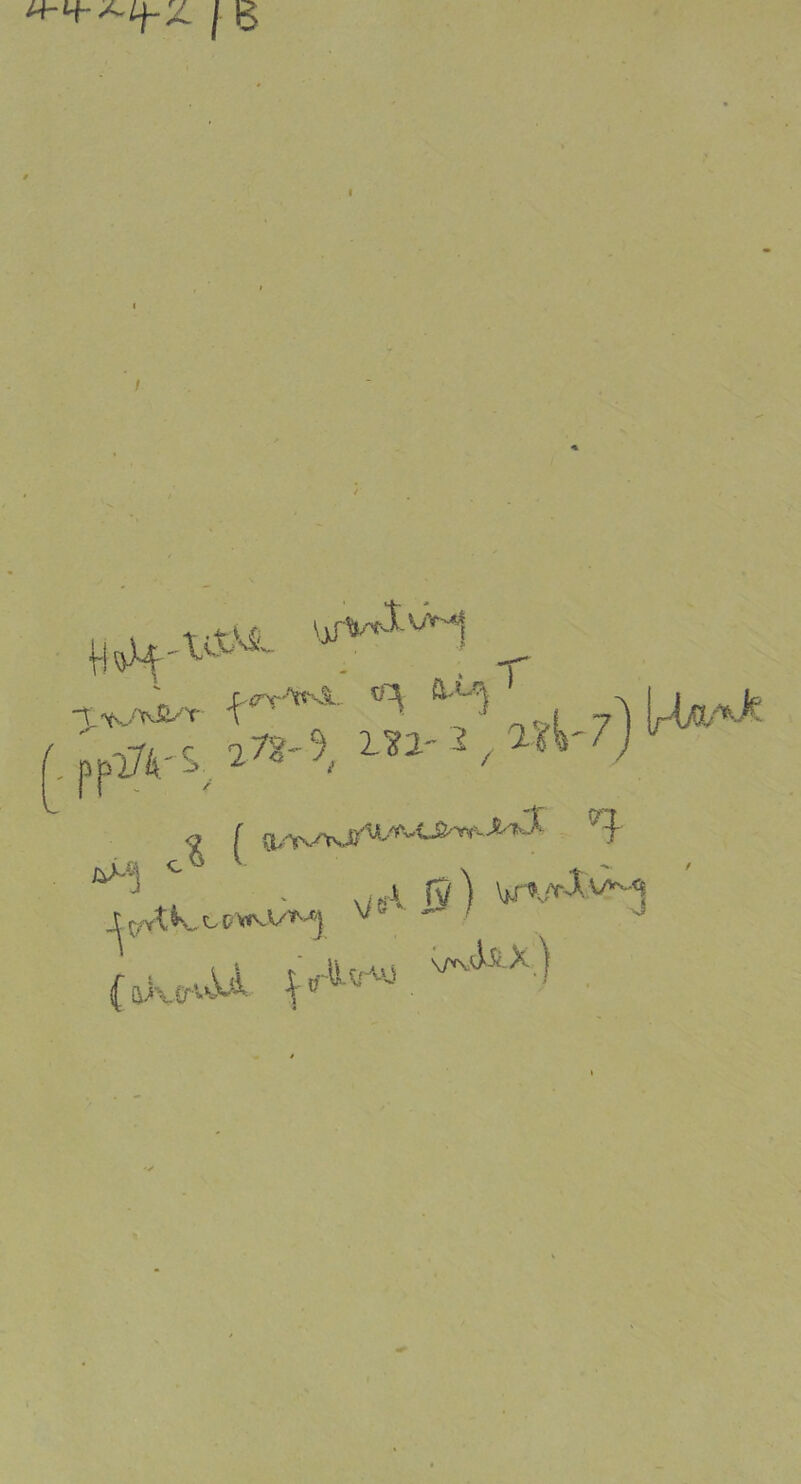 44242/B
Half-title wanting
Inner forme of sig T
(pp 274-5, 278-9, 282-3, 286-7) blank
sig c8 (announcement of
forthcoming vol IV) wanting
(should follow index.)